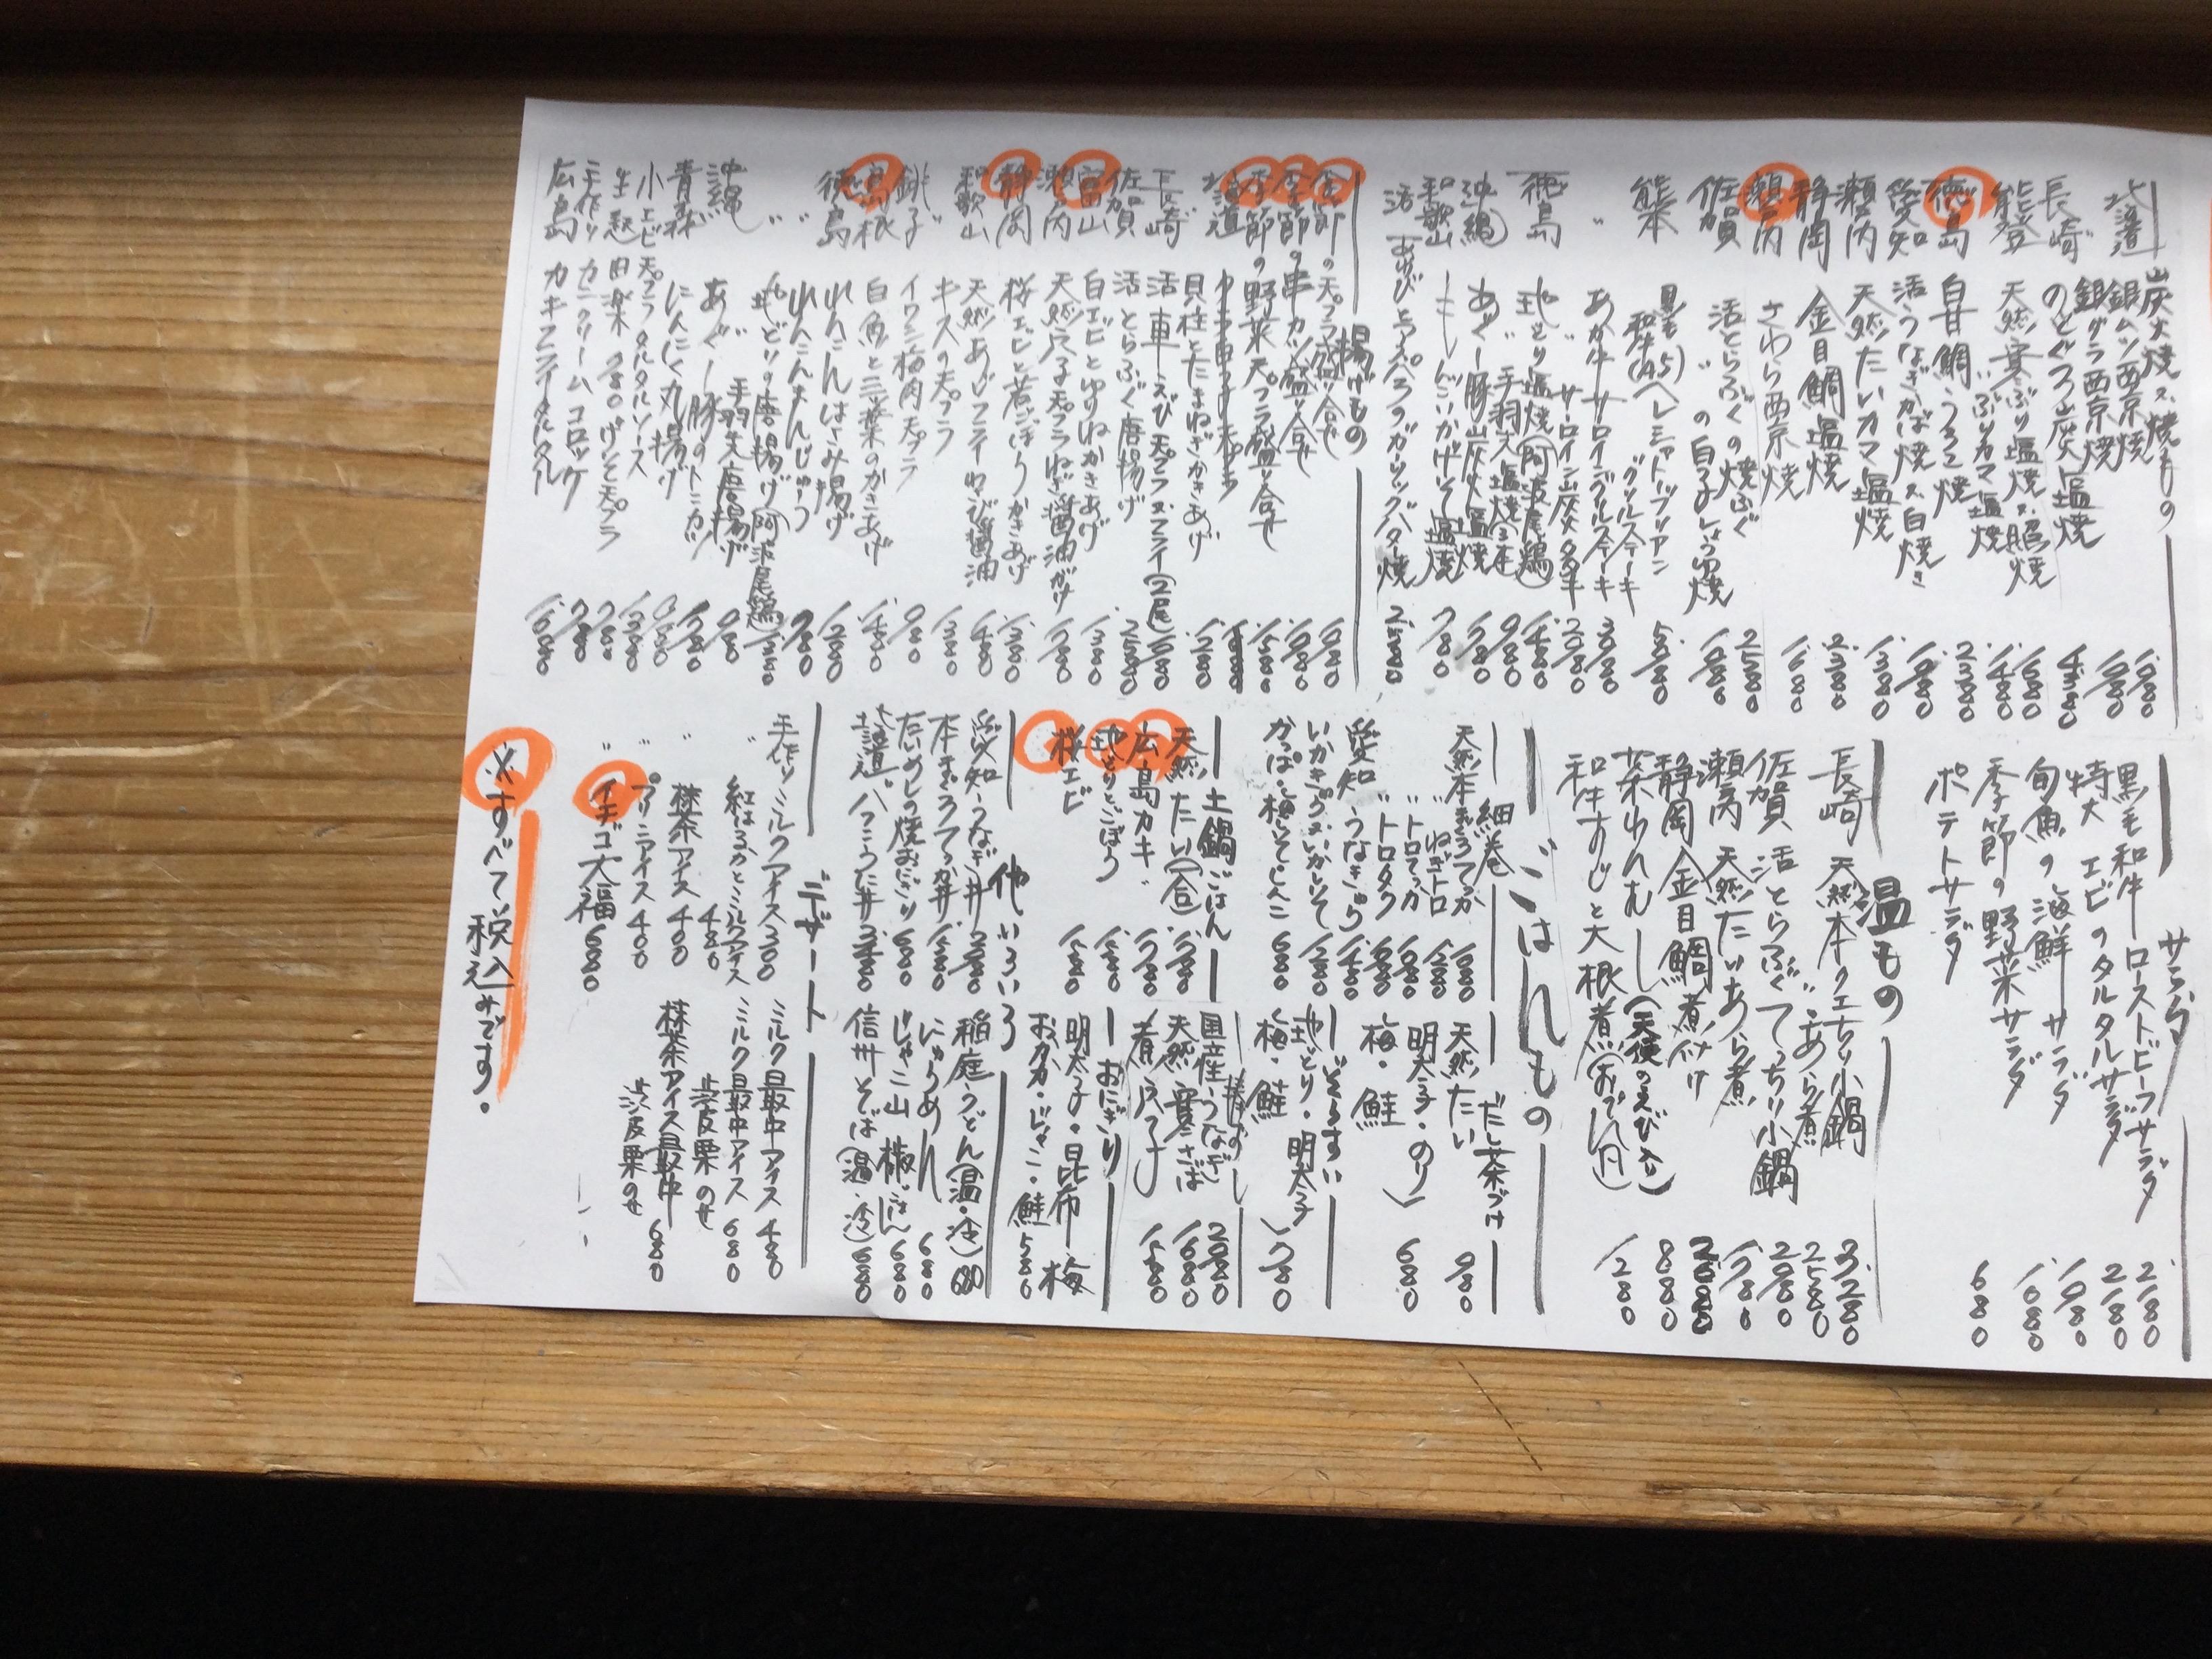 炭火焼・焼もの
北海道 銀ムツ西京焼 1,980
銀ダラ西京焼 1,980
長崎 のどぐろ炭塩焼
能登 天然寒ぶり塩焼・照焼 1,680
〃 ぶりカマ塩焼 1,480
徳島 白甘鯛うろこ焼 2,380
愛知 活うなぎかば焼・白焼き
瀬戸内 天然たいカマ塩焼 1,380
静岡 金目鯛塩焼 2,380
瀬戸内 さわら西京焼 1,680
佐賀 活とらふぐの焼ふぐ 2,580
〃 の白子しょうゆ焼
熊本 黒毛和牛(A5)ヘレシャトーブリアン
グリルステーキ
〃 あか牛サーロイングリルステーキ
〃 サーロイン炭火タタキ
徳島 地どり塩焼(阿波尾鶏) 1,480
〃 手羽先塩焼
沖縄 あぐー豚炭火塩焼
和歌山 しんこいかげそ塩焼 780
活あわび
揚げもの
季節の天プラ盛り合せ
季節の串カツ盛り合せ
季節の野菜天プラ盛り合せ
北海道
貝柱とたまねぎかきあげ 1,280
長崎 活車えび天プラ・フライ(2尾)
佐賀 活とらふぐ唐揚げ 2,580
富山 白エビとゆりねかきあげ 1,380
瀬戸内 天然穴子天プラねぎ醤油がけ
静岡 桜エビと若ごぼうかきあげ 1,380
和歌山 天然あじフライわさび醤油 1,480
〃 キスの天プラ 1,380
銚子 イワシ梅肉天プラ 980
島根 白魚と三ツ葉のかきあげ 1,480
徳島 れんこんはさみ揚げ
〃 れんこんまんじゅう
〃 地どりの唐揚げ(阿波尾鶏)
〃 手羽先唐揚げ 980
沖縄 あぐー豚のトンカツ
青森 にんにく丸揚げ
小エビ天プラタルタルソース
手作りカニクリームコロッケ
広島 カキフライタルタル 1,680
サラダ
黒毛和牛ローストビーフサラダ 2,180
特大エビのタルタルサラダ 2,180
旬魚の海鮮サラダ 1,980
季節の野菜サラダ 1,080
ポテトサラダ 680
温もの
長崎 天然本クエちり小鍋 3,280
〃 あら煮 2,580
佐賀 活とらふぐてっちり小鍋 2,980
瀬戸内 天然たいあら煮 1,780
静岡 金目鯛煮付け
茶わんむし(天使のえび入) 880
和牛すじと大根煮(おでん風) 1,280
ごはんもの
細巻
天然本まぐろてっか
〃 ねぎトロ 1,280
〃 トロてっか
〃 トロタク
愛知 うなきゅう 1,480
いかきゅう・いかしそ
かっぱ・梅しそ・しんこ 680
だし茶づけ
天然たい 980
明太子・のり
梅・鮭 680
ぞうすい
地どり・明太子
梅・鮭 780
土鍋ごはん
天然たい(一合)
広島カキ 1,780
地どりとごぼう
桜エビ
棒ずし
国産うなぎ 2,980
天然寒さば 1,680
煮穴子 1,580
おにぎり
明太子・昆布・梅
おかか・じゃこ・鮭 580
他いろいろ
愛知 うなぎ丼
本まぐろてっか丼
たいめしの焼おにぎり 680
北海道 バフンうに丼
稲庭うどん(温・冷) 680
にゅうめん 680
じゃこ山椒ごはん 680
信州そば(温・冷) 680
デザート
手作りミルクアイス 300
〃 紅はるかとミルクアイス 480
〃 抹茶アイス 400
〃 プリンアイス 400
〃 イチゴ大福 680
ミルク最中アイス 480
ミルク最中アイス
渋皮栗のせ 680
抹茶アイス最中
渋皮栗のせ 680
※すべて税込みです。